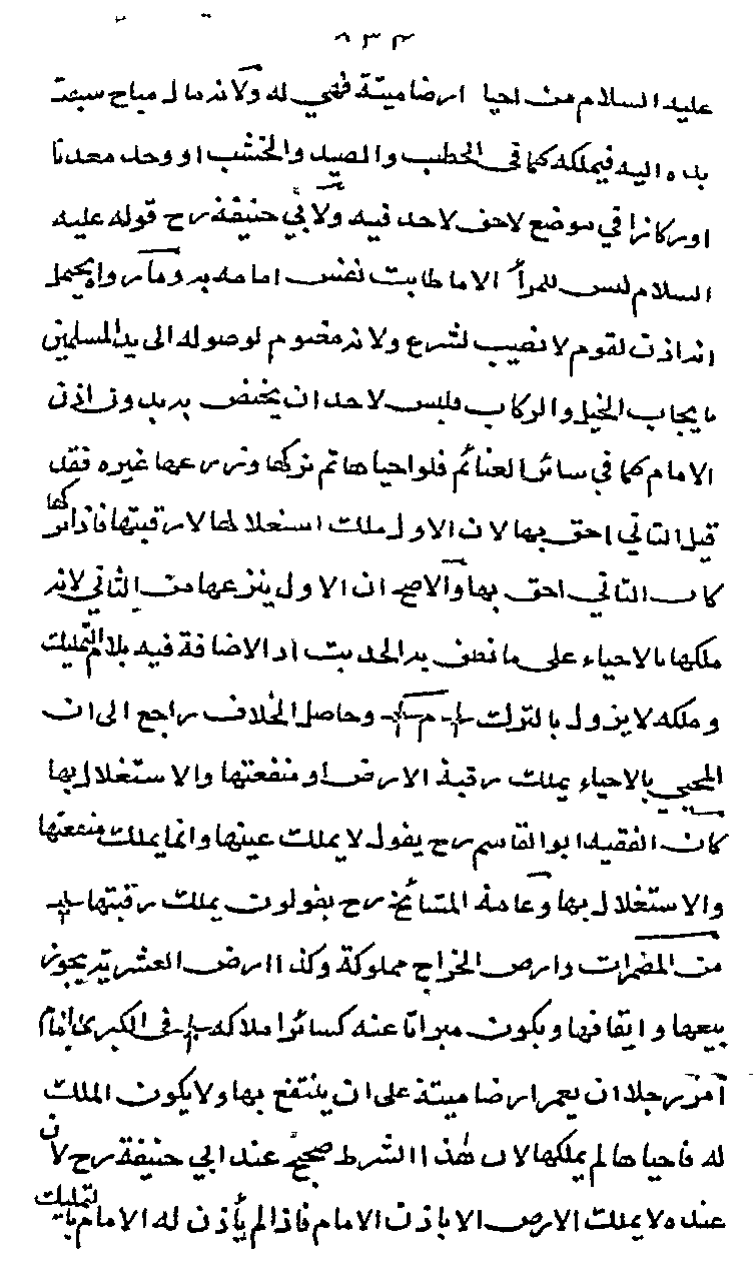 ٨٣٤
عليه السلام من احيا ارضا ميتة فهي له ولانه مال مباح سبقت
يده اليه فيملكه كما في الحطب والصيد والخشب او وجد معدنا
او ركازا في موضع لاحق لاحد فيه ولابي حنيفة رح قوله عليه
السلام ليس للمرأ الا ما طابت نفس امامه به وما رواه يحتمل
انه اذن لقوم لا نصيب لشرع ولانه مغنوم لوصوله الى يد المسلمين
بايجاب الخيل والركاب فليس لاحد ان يختص به بدون اذن
الامام كما في سائر الغنائم فلو احياها ثم تركها وزرعها غيره فقد
قيل الثاني احق بها لان الاول ملك استغلالها لا رقبتها فاذا تركها
كان الثاني احق بها والاصح ان الاول ينزعها من الثاني لانه
ملكها بالاحياء على ما نطق به الحديث اذ الاضافة فيه بلام التمليك
وملكه لا يزول بالترك وحاصل الخلاف راجع الى ان
المحيي بالاحياء يملك رقبة الارض او منفعتها والاستغلال بها
كان الفقيه ابو القاسم رح يقول لا يملك عينها وانما يملك منفعتها
والاستغلال بها وعامة المشائخ رح يقولون يملك رقبتها
من المضمرات وارض الخراج مملوكة وكذا ارض العشر يه يجوز
بيعها وايقافها ويكون ميراثا عنه كسائر املاكه في الكبرى امام
امر رجلا ان يعمر ارضا ميتة على ان ينتفع بها ولا يكون الملك
له فاحياها لم يملكها لان هذا الشرط صحيح عند ابي حنيفة رح لان
عنده لا يملك الارض الا باذن الامام فاذا لم يأذن له الامام بالتمليك